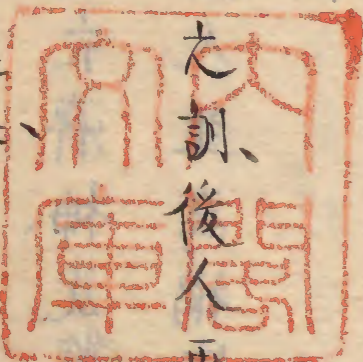 訓、後人
内閣
文庫